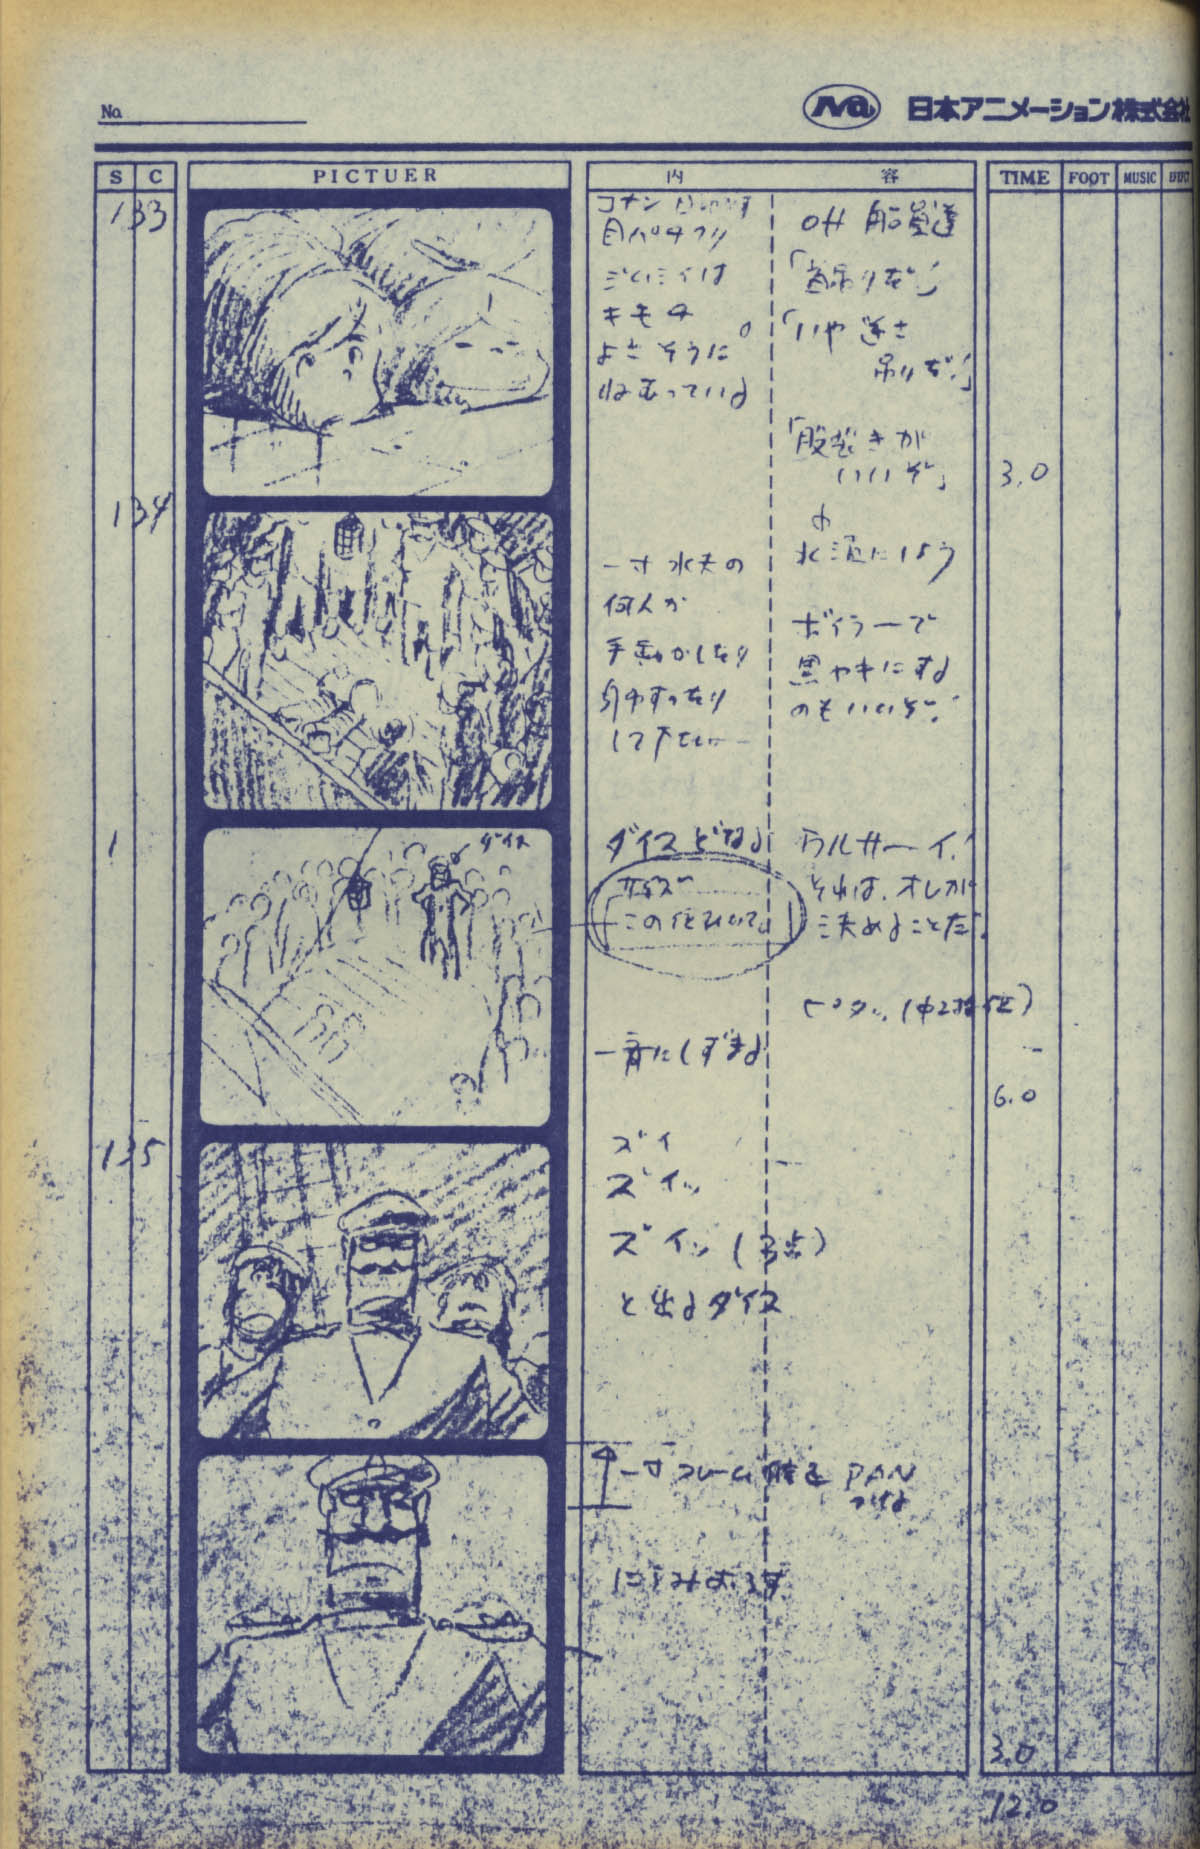 No.
Na 日本アニメーション株式会社
S C PICTUER 内 容 TIME FOOT MUSIC
133
コナン
目パチクリ
ジムシイは
キモチ
よさそうに
ねむっている
off 船員達
「首吊りだ!」
「いや逆さ
吊りだ!」
「股ざきが
いいぞ」
3.0
134
一寸 水夫の
何人か
手動かしたり
身ゆすったり
して下さい
水漬にしよう
ボイラーで
黒ヤキにする
のもいいぞ!
ダイス
ダイスどなる
この位ひいて
ウルサーイ!
それは、オレが
決めることだ!
ピタッ
一斉にしずまる
6.0
135
ズイ
ズイッ
ズイッ
と出るダイス
一寸フレーム PAN
つける
にらみまわす
3.0
12.0